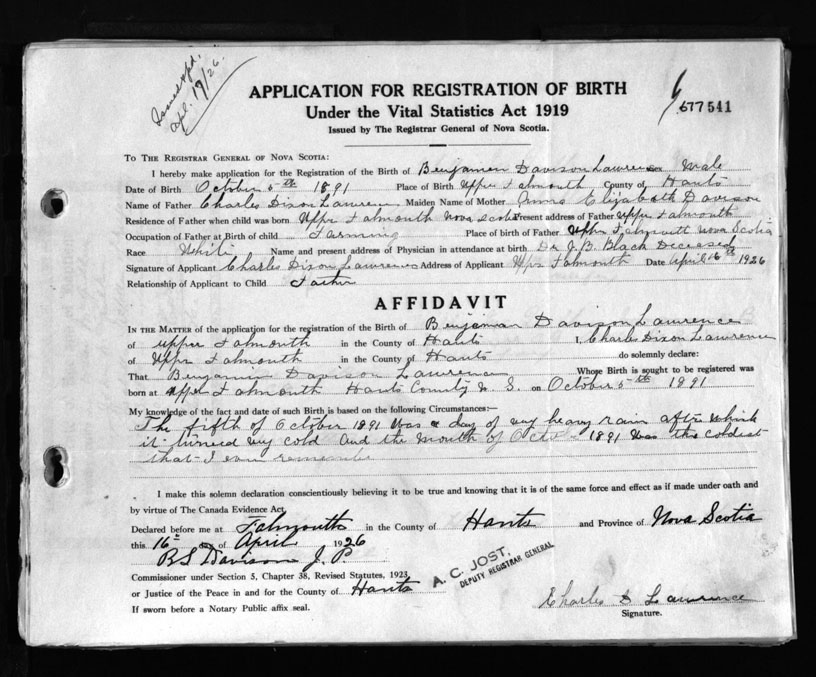 Issued spd.
Apl. 19/26.
APPLICATION FOR REGISTRATION OF BIRTH
Under the Vital Statistics Act 1919
Issued by The Registrar General of Nova Scotia.
677541
TO THE REGISTRAR GENERAL OF NOVA SCOTIA:
I hereby make application for the Registration of the Birth of Benjamen Davison Lawrence Male
Date of Birth October 5th 1891 Place of Birth Upper Falmouth County of Hants
Name of Father Charles Dixon Lawrence Maiden Name of Mother Elizabeth Davison
Residence of Father when child was born Uppr Falmouth Nova Scotia Present address of Father Upper Falmouth
Occupation of Father at Birth of child Farming Place of birth of Father Upper Falmouth Nova Scotia
Race White Name and present address of Physician in attendance at birth Dr J.B. Black Deceased
Signature of Applicant Charles Dixon Lawrence Address of Applicant Uppr Falmouth Date April 16th 1926
Relationship of Applicant to Child Father
AFFIDAVIT
IN THE MATTER of the application for the registration of the Birth of Benjeman Davison Lawrence
of Upper Falmouth in the County of Hants I, Charles Dixon Lawrence
of Uppr Falmouth in the County of Hants do solemnly declare:
That Benjamin Davison Lawrence Whose Birth is sought to be registered was
born at Upper Falmouth Hants County N. S. on October 5th 1891
My knowledge of the fact and date of such Birth is based on the following Circumstances:—
The fifth of October 1891 was a day of very heavy rain after which
it turned very cold and the month of Octo 1891 was the coldest
that I ever remember
I make this solemn declaration conscientiously believing it to be true and knowing that it is of the same force and effect as if made under oath and
by virtue of The Canada Evidence Act
Declared before me at Falmouth in the County of Hants and Province of Nova Scotia
this 16th day of April 1926
R S Davison J. P.
Commissioner under Section 5, Chapter 38, Revised Statutes, 1923
or Justice of the Peace in and for the County of Hants
If sworn before a Notary Public affix seal.
A. C. JOST,
DEPUTY REGISTRAR GENERAL
Charles D Lawrence
Signature.